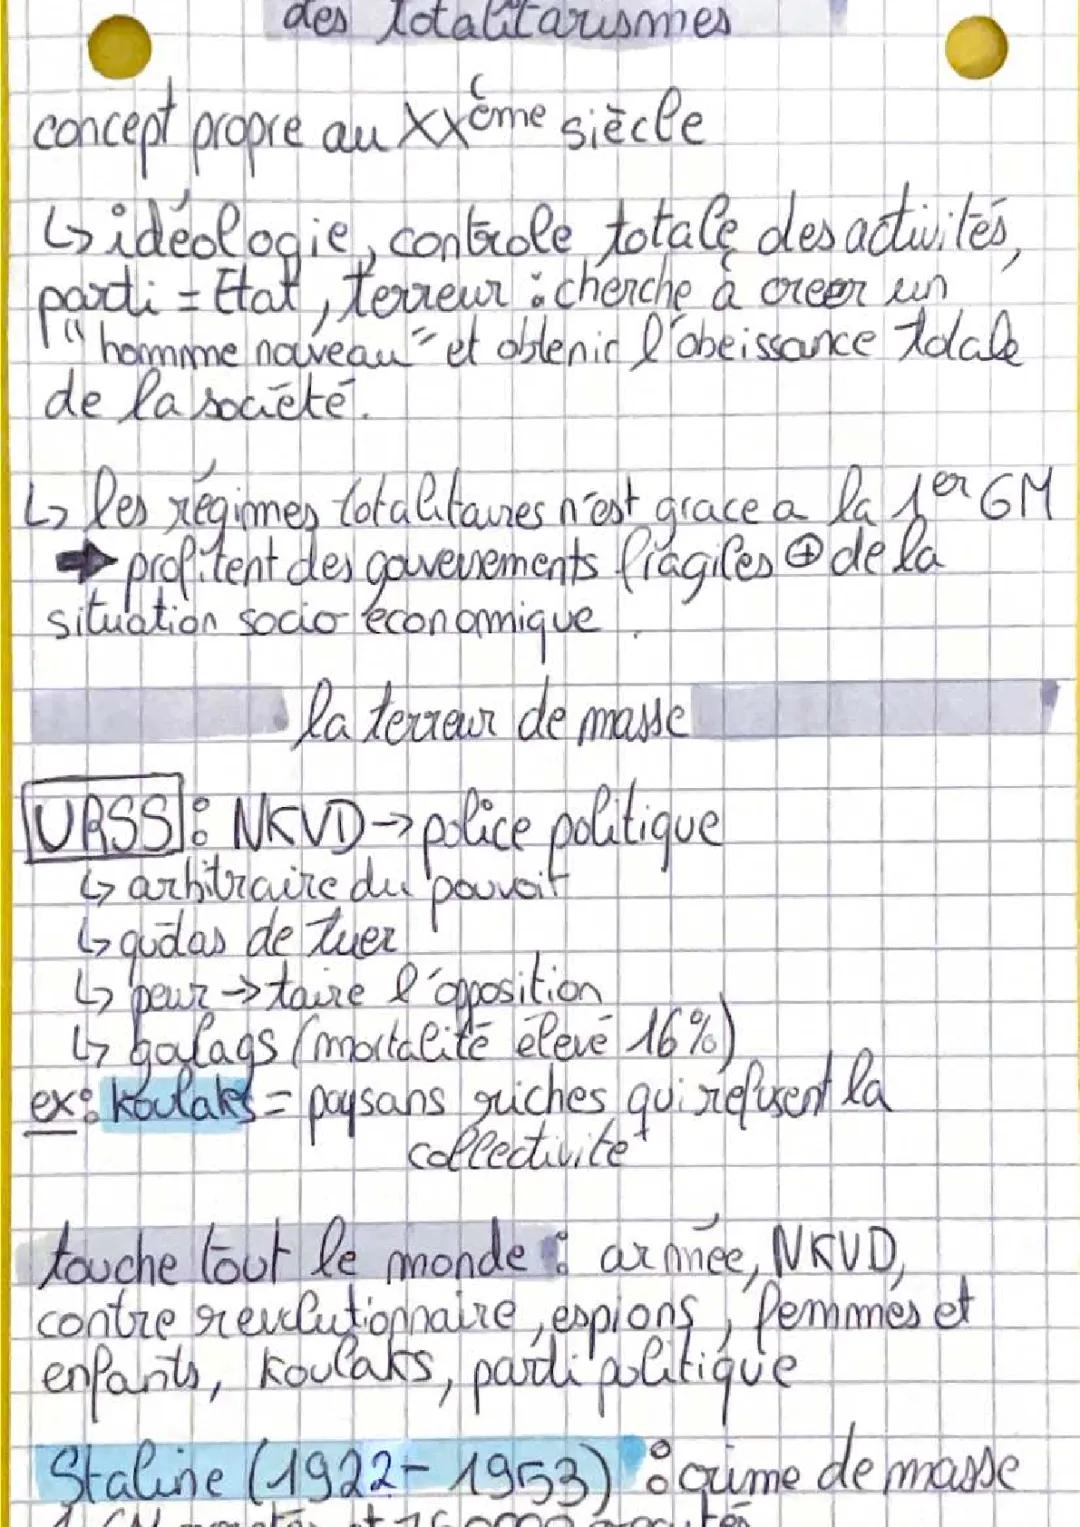 des totalitarismes
concept propre au XXème siècle
↳ idéologie, controle totale des activités,
parti = Etat, terreur : cherche à creer un
"homme nouveau" et obtenir l'obeissance totale
de la société.
↳ les régimes totalitaires n'est grace a la 1er GM
➡ profitent des gouvenements fragiles ⊕ de la
situation socio économique.
la terreur de masse
URSS : NKVD → police politique
↳ arbitraire du pouvoir
↳ quotas de tuer
↳ peur → taire l'opposition
↳ goulags (mortalité élevé 16%)
ex : koulaks = paysans riches qui refusent la
collectivité
touche tout le monde : armée, NKVD,
contre revolutionnaire, espions, femmes et
enfants, koulaks, parti politique
Staline (1922 - 1953) : crime de masse